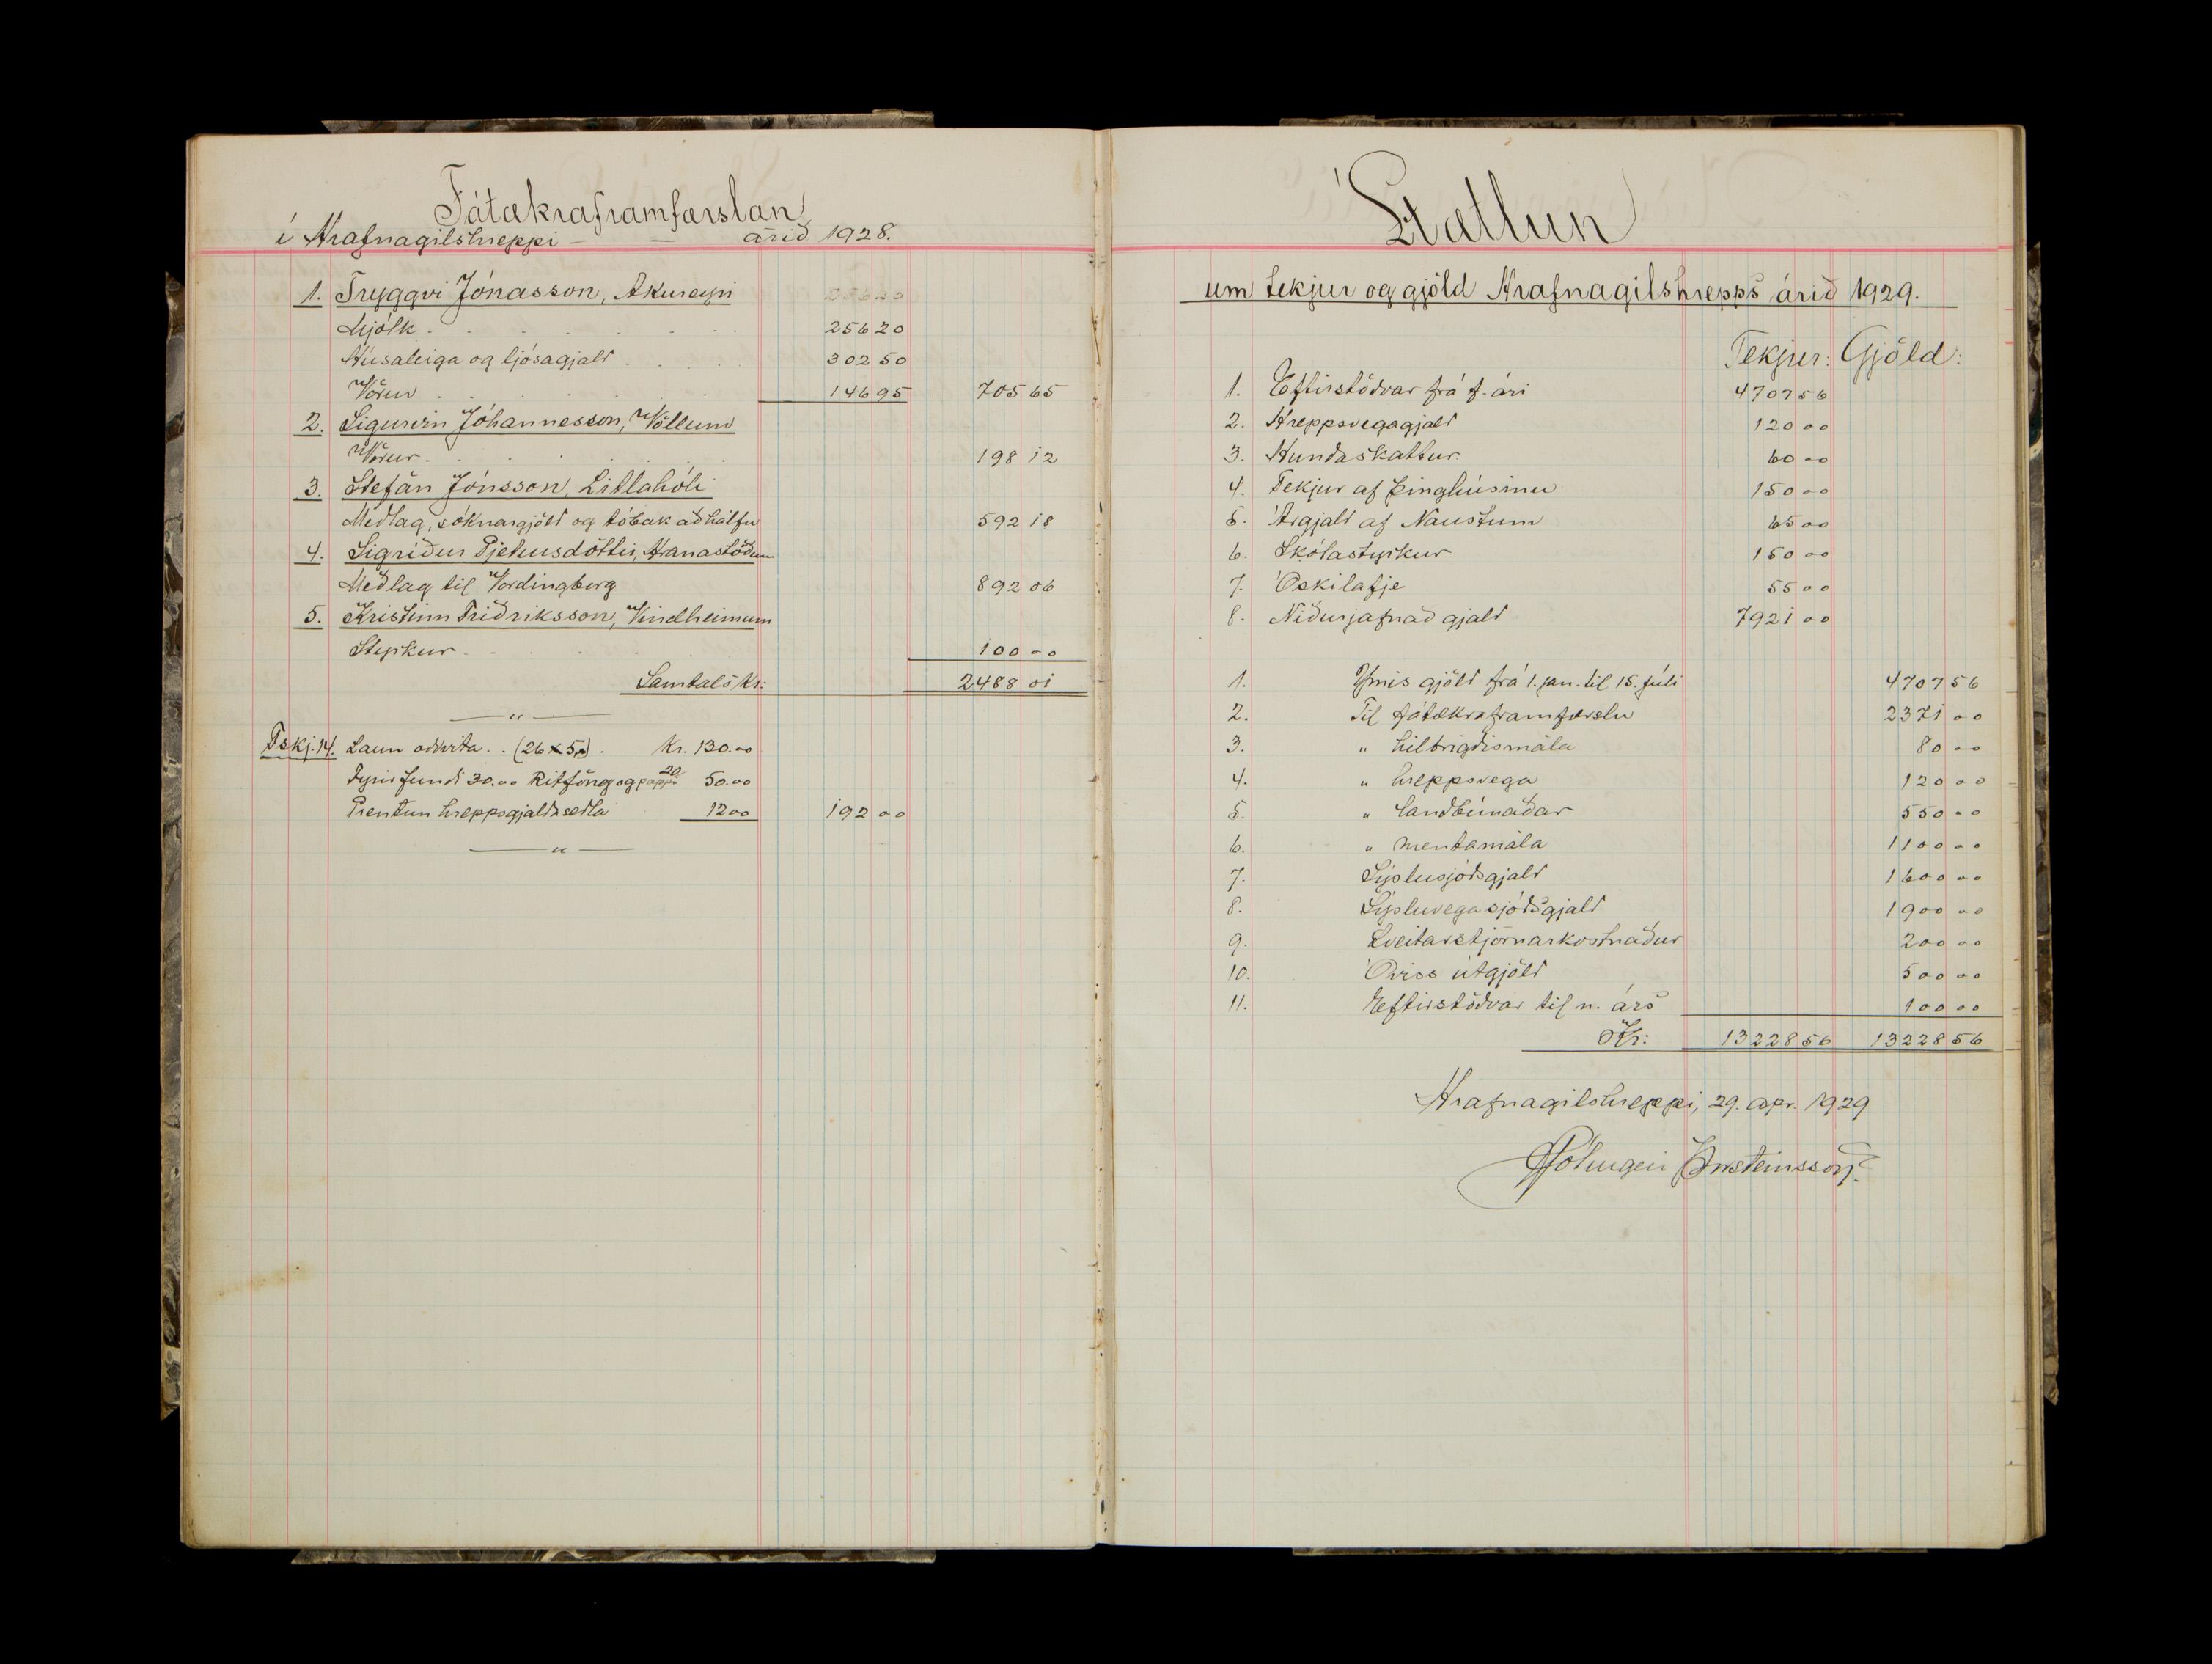 Fátækraframfærslan
í Hrafnagilshreppi — — árið 1928.
1. Tryggvi Jónasson, Akureyri
Mjólk . . . . . . . 256 20
Húsaleiga og ljósagjald . . . . 302 50
Vörur . . . . . . . 146 95 705 65
2. Sigurvin Jóhannesson, Völlum
Vörur . . . . . . . 198 12
3. Stefán Jónsson, Litlahóli
Meðlag, sóknargjöld og tóbak að hálfu 592 18
4. Sigríður Pjetursdóttir, Hranastöðum
Meðlag til Vordingborg 892 06
5. Kristinn Friðriksson, Vindheimum
Styrkur . . . . 100 00
Samtals kr: 2488 01
— " —
Fskj. 14. Laun oddvita . . (26 x 5,00) . Kr. 130.00
Fyrir fundi 30.00 Ritföng og pappír 20 50.00
Prentun hreppsgjaldsseðla 12 00 192 00
— " —
Áætlun
um tekjur og gjöld Hrafnagilshrepps árið 1929.
Tekjur: Gjöld:
1. Eftirstöðvar frá f. ári 4707 56
2. Hreppsvegagjald 120 00
3. Hundaskattur 60 00
4. Tekjur af þinghúsinu 150 00
5. Árgjald af Naustum 65 00
6. Skólastyrkur 150 00
7. Óskilafje 55 00
8. Niðurjafnað gjald 7921 00
1. Ýmis gjöld frá 1. jan. til 15. júlí 4707 56
2. Til fátækraframfærslu 2371 00
3. " heilbrigðismála 80 00
4. " hreppsvega 120 00
5. " landbúnaðar 550 00
6. " mentamála 1100 00
7. Sýslusjóðsgjald 1600 00
8. Sýsluvegasjóðsgjald 1900 00
9. Sveitarstjórnarkostnaður 200 00
10. Óviss útgjöld 500 00
11. Eftirstöðvar til n. árs 100 00
Kr: 13228 56 13228 56
Hrafnagilshreppi, 29. apr. 1929
Hólmgeir Þorsteinsson.